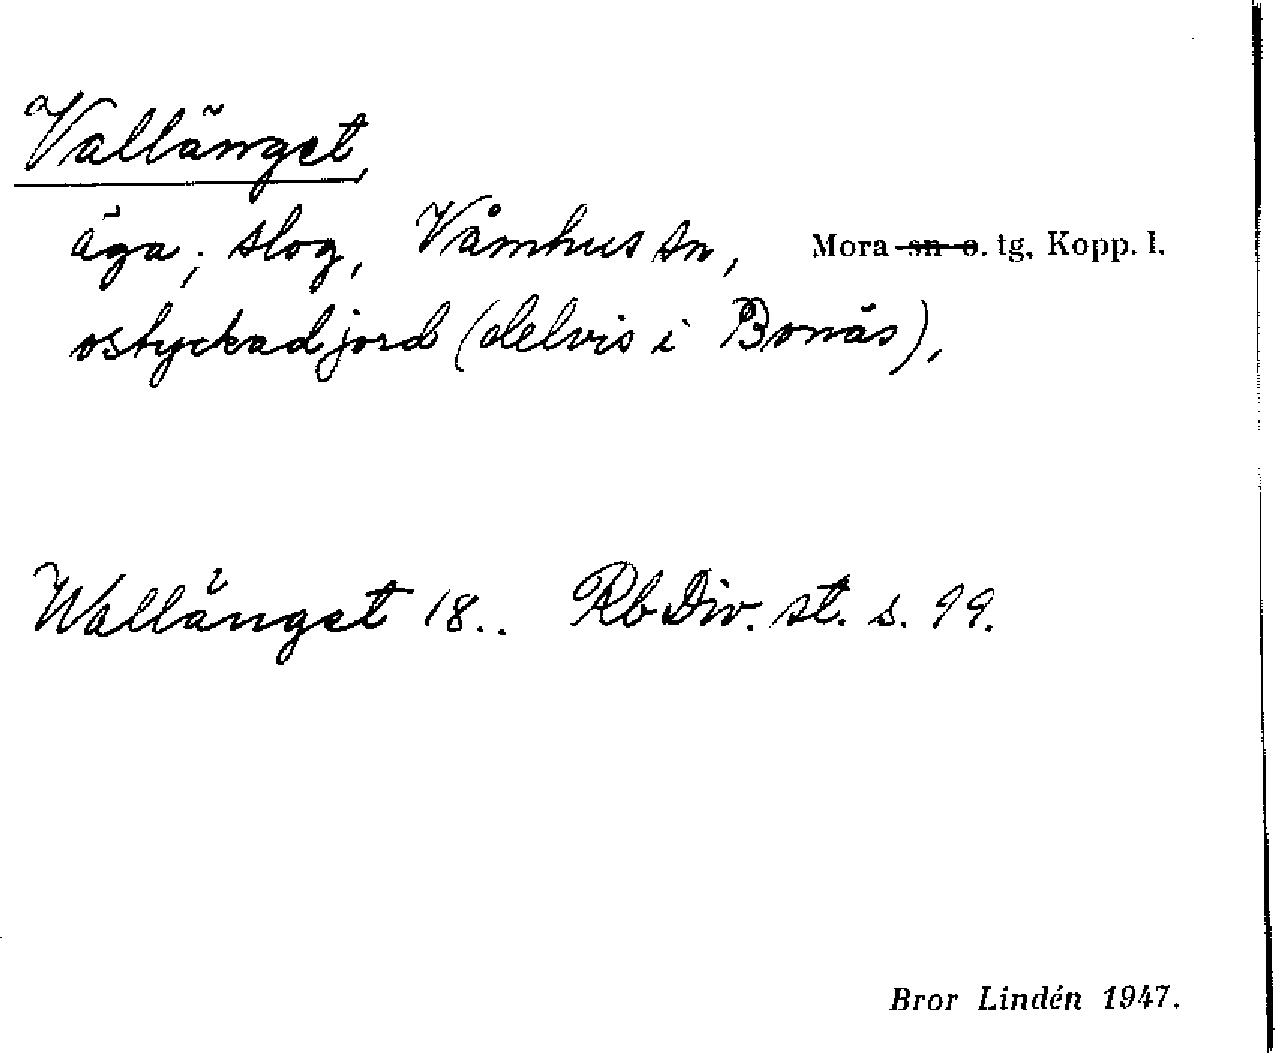 Vallänget,
äga; slog, Våmhus sn, Mora sn o. tg, Kopp. l.
ostyckad jord (delvis i Bonäs),
Wallänget 18.. Rb Div. st. s. 99.
Bror Lindén 1947.